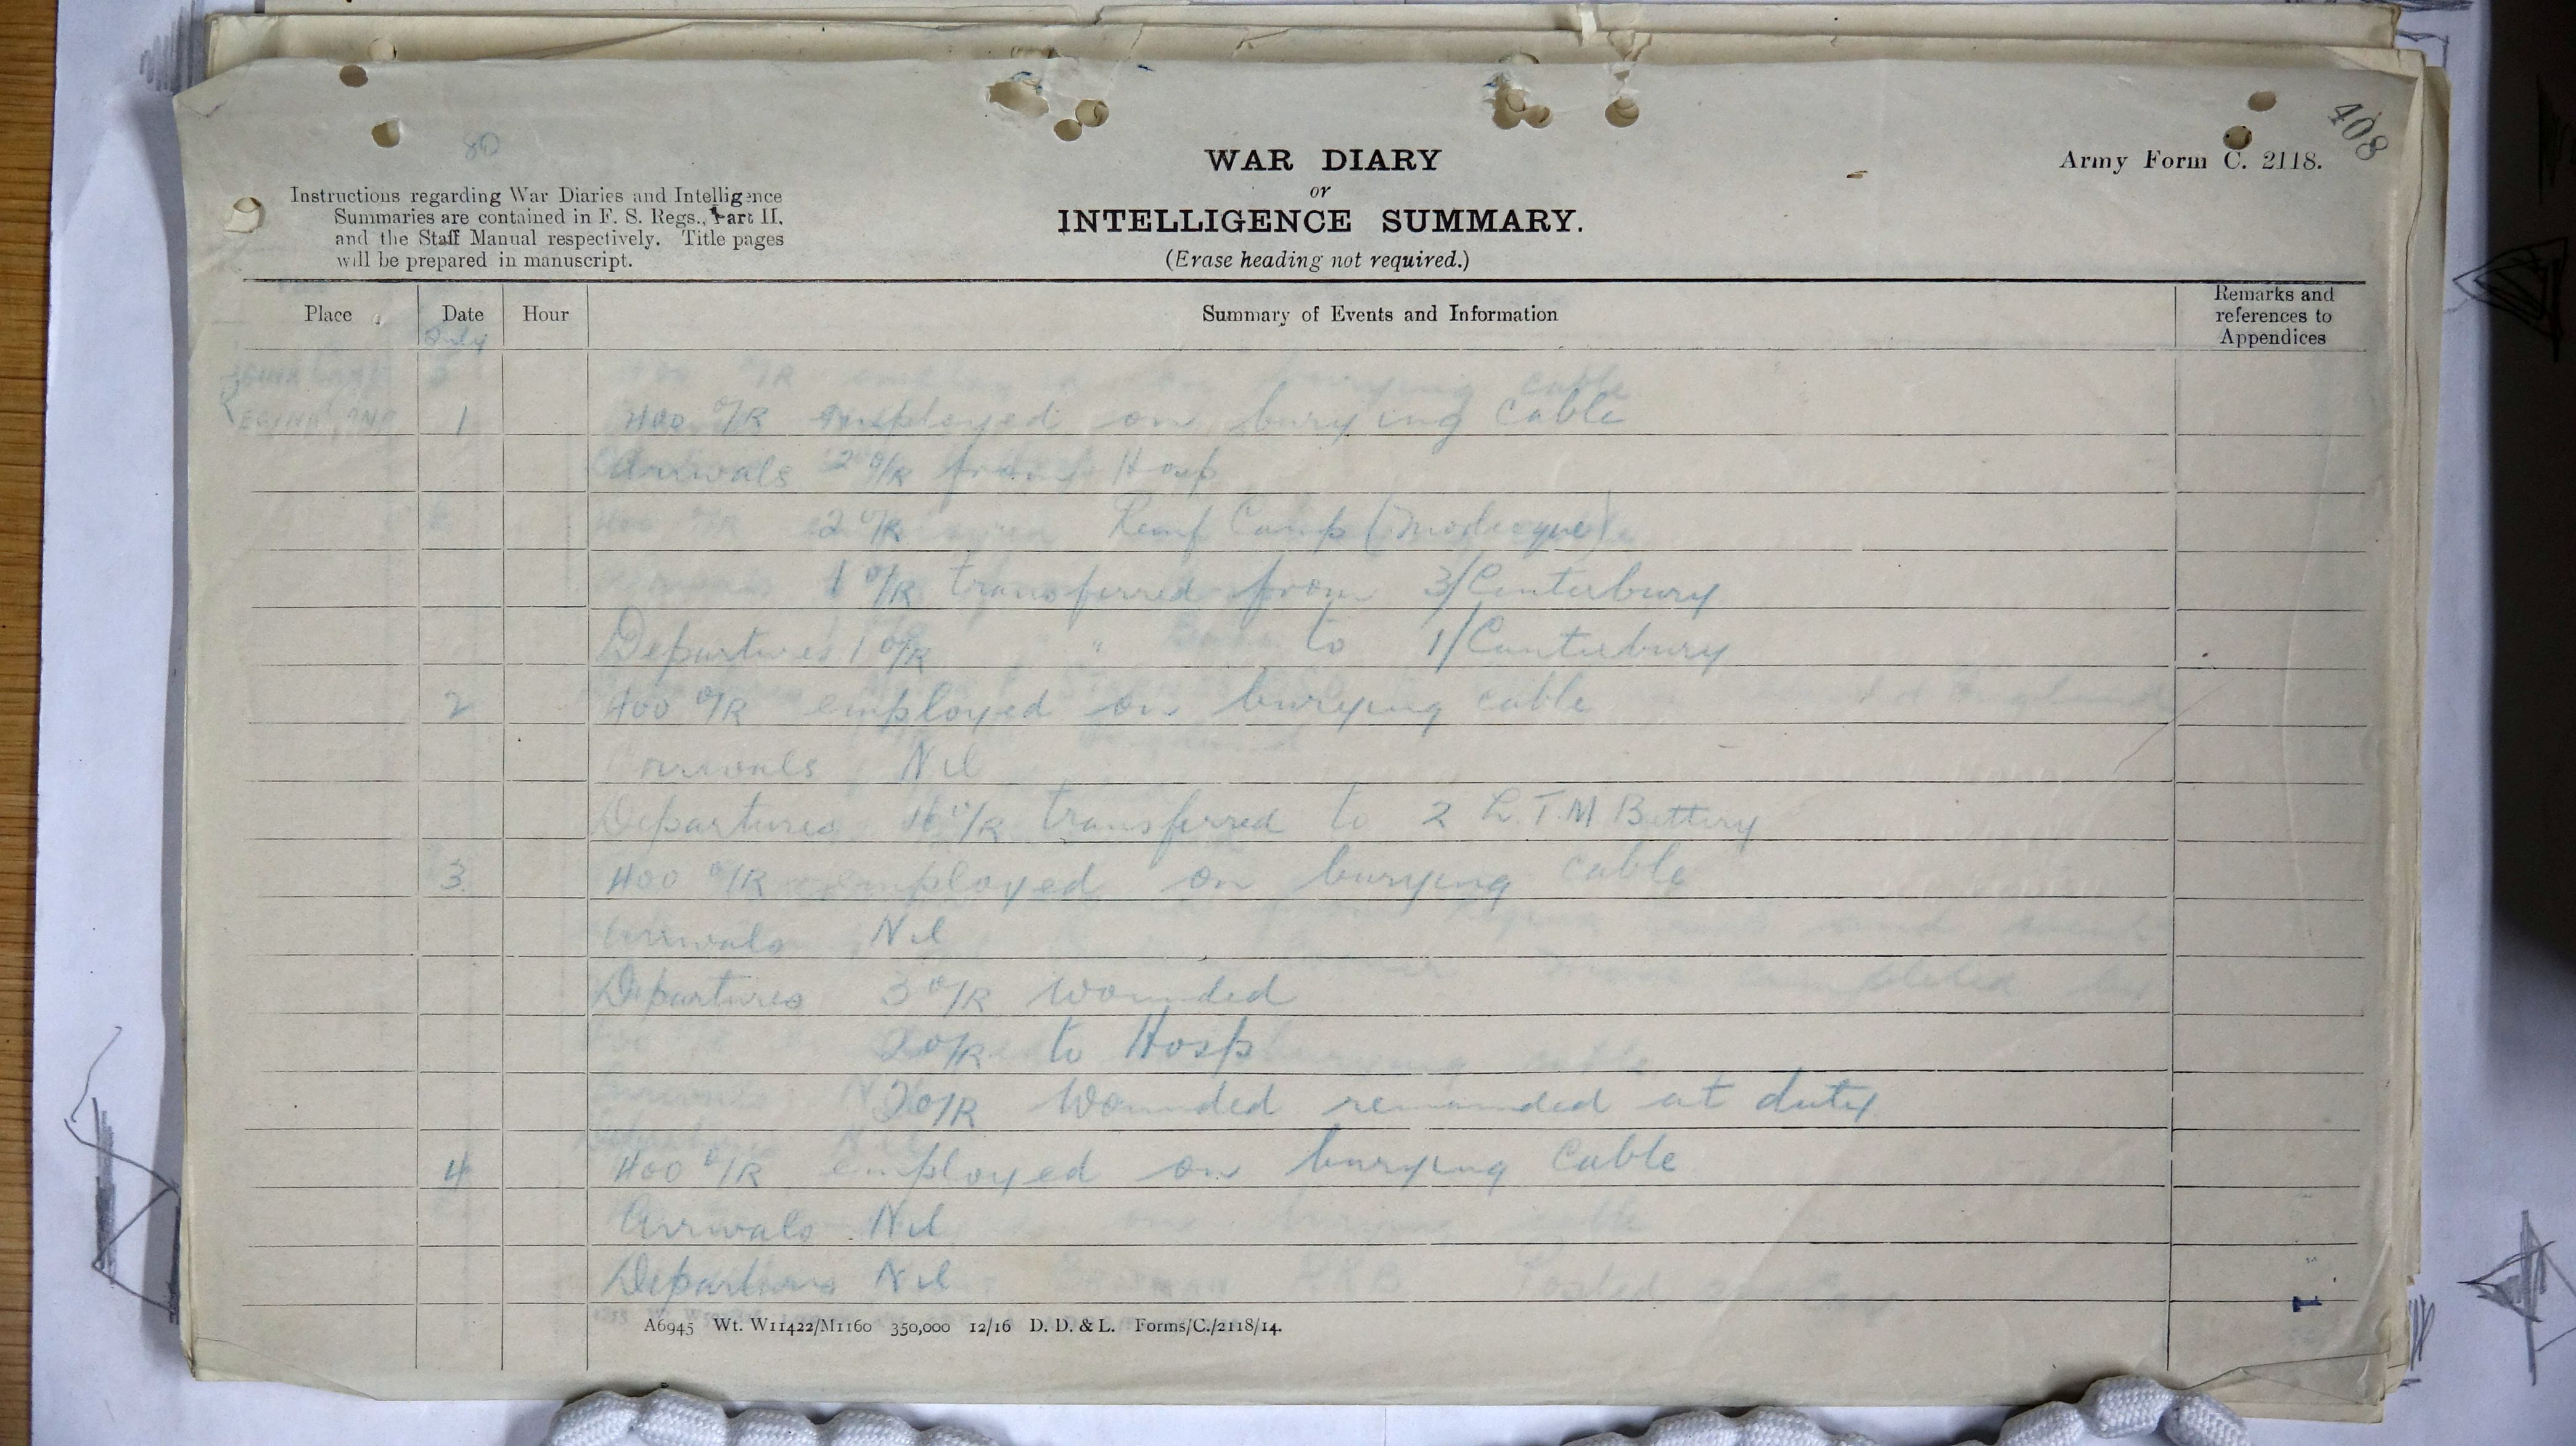 408
80
WAR DIARY
or
INTELLIGENCE SUMMARY.
(Erase heading not required.)
Army Form C. 2118.
Instructions regarding War Diaries and Intelligence
Summaries are contained in F. S. Regs., Part II.
and the Staff Manual respectively. Title pages
will be prepared in manuscript.
Place Date Hour Summary of Events and Information Remarks and references to Appendices
July
1 400 O/R employed on burying cable
Arrivals 2 O/R from Hosp
2 O/R Reinf Camp (Morbecque)
1 O/R transferred from 3/Canterbury
Departures 1 O/R " to 1/Canterbury
2 400 O/R employed on burying cable
Arrivals Nil
Departures O/R transferred to 2 L.T.M Battery
3 400 O/R employed on burying cable
Arrivals Nil
Departures 3 O/R wounded
2 O/R to Hosp
2 O/R Wounded remained at duty
4 400 O/R employed on burying cable
Arrivals Nil
Departures Nil
A6945 Wt. W11422/M1160 350,000 12/16 D. D. & L. Forms/C./2118/14.
1